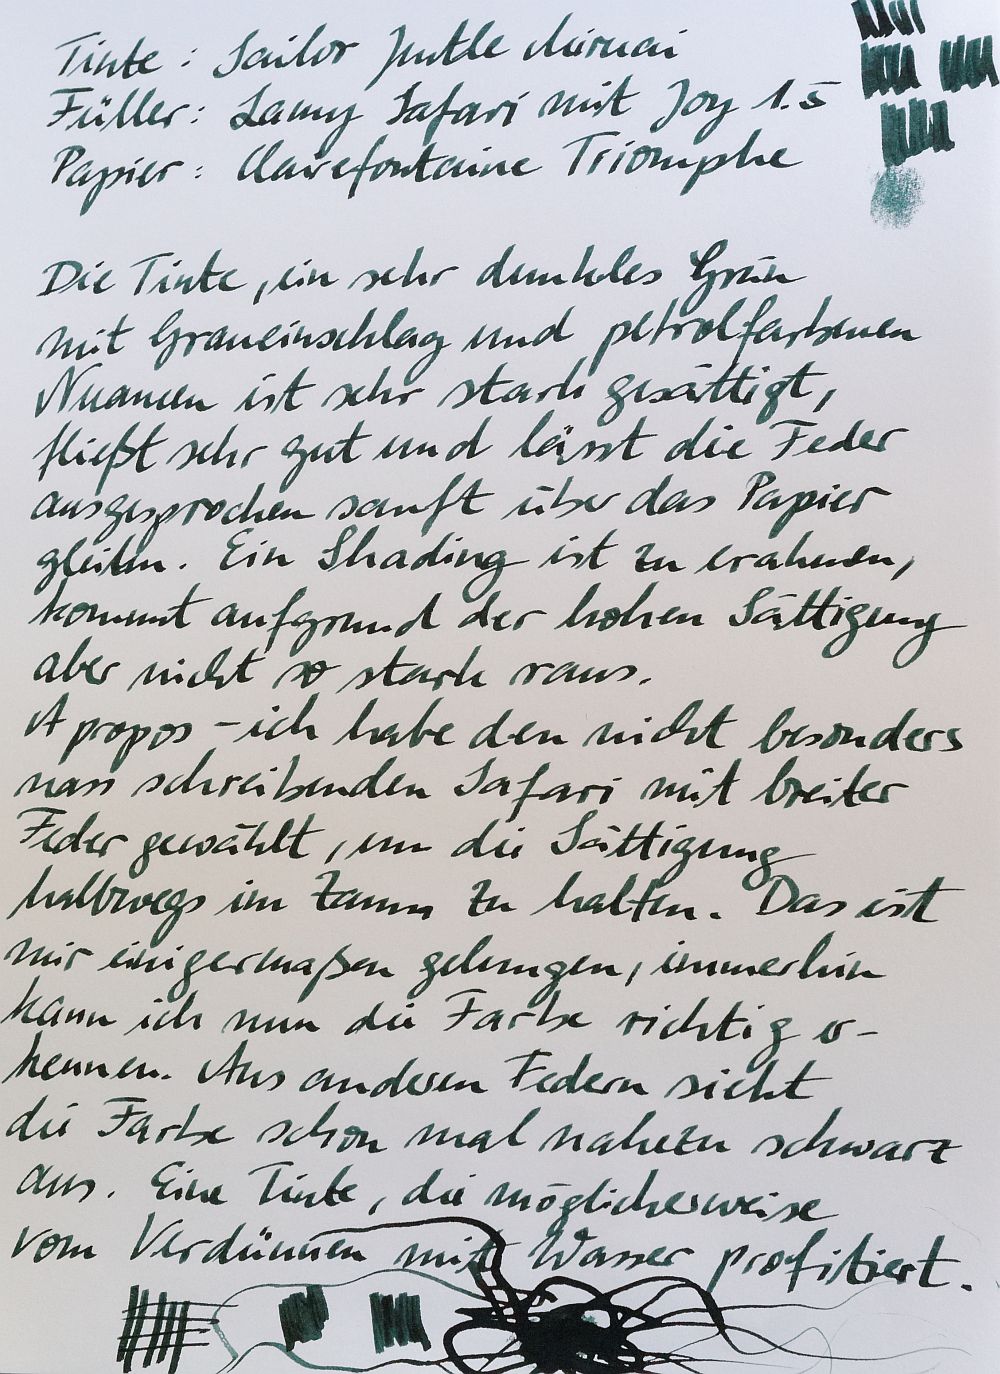 Tinte: Sailor Jentle Miruai
Füller: Lamy Safari mit Joy 1.5
Papier: Clairefontaine Triomphe
Die Tinte, ein sehr dunkles Grün
mit Graueinschlag und petrolfarbenen
Nuancen ist sehr stark gesättigt,
fließt sehr gut und lässt die Feder
ausgesprochen sanft über das Papier
gleiten. Ein Shading ist zu erahnen,
kommt aufgrund der hohen Sättigung
aber nicht so stark raus.
Apropos - ich habe den nicht besonders
nass schreibenden Safari mit breiter
Feder gewählt, um die Sättigung
halbwegs im Zaum zu halten. Das ist
mir einigermaßen gelungen, immerhin
kann ich nun die Farbe richtig er-
kennen. Aus anderen Federn sieht
die Farbe schon mal nahezu schwarz
aus. Eine Tinte, die möglicherweise
vom Verdünnen mit Wasser profitiert.